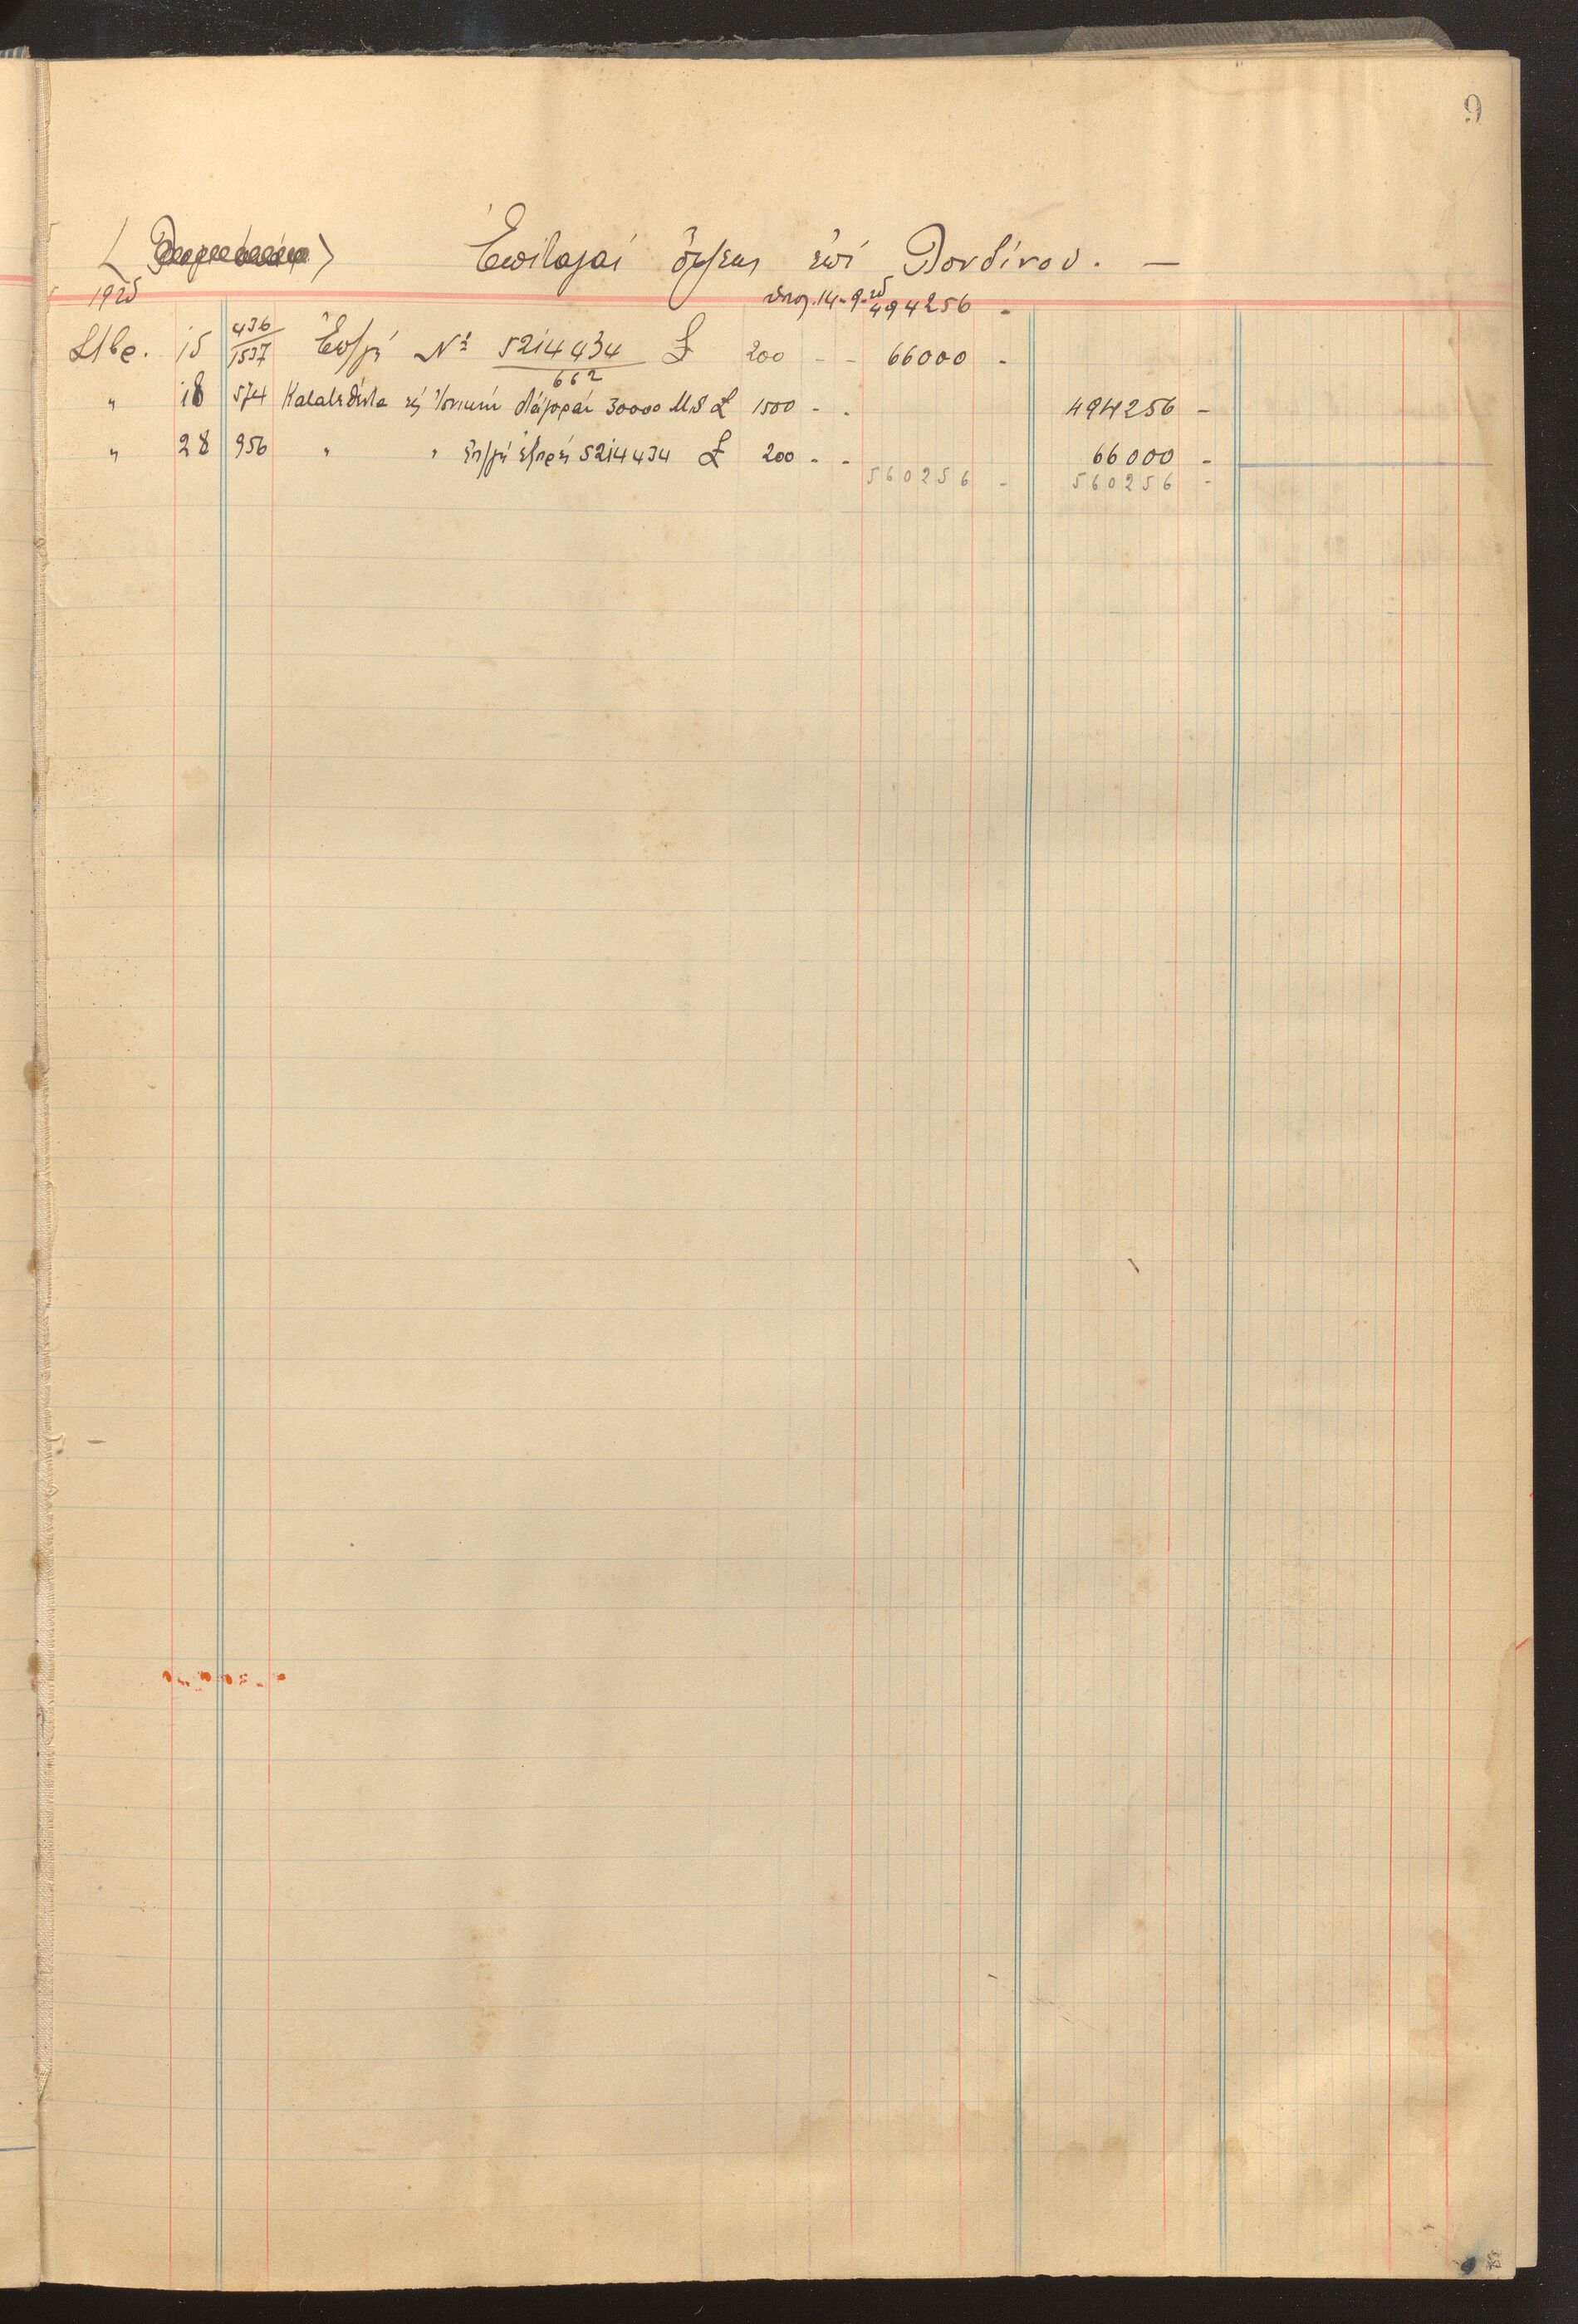 9
Ἐπιταγαί ὄψεως ἐπί Λονδίνου. —
1925
ὑπολ. 14-9-25 494256 -
Σ/βρ. 15 436/1537 Ἐπ/γή Nº 5214434/662 £ 200 - - 66000 -
" 18 574 Κατατεθεῖσα εἰς Ἰονικήν διάφοραι 30000 ΜΣ £ 1500 - - 494256 -
" 28 956 " " ἐπ/γή 5214434 £ 200 - - 66000 -
560256 - 560256 -